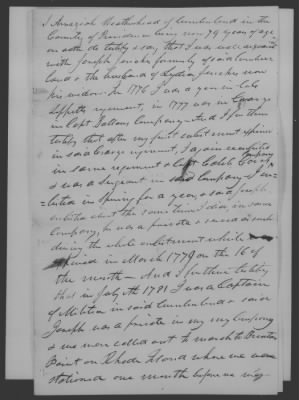 I Amaziah Weatherhead of Cumberland in the
County of Providence being now 79 years of age
on oath do testify & say that I was well acquaint
with Joseph Jenckes formerly of said Cumber
land & the husband of Lydia Jenckes now
his widow. In 1776 I was a year in Col.
Lippetts regiment, in 1777 was in Crarys
in Capt Ballou Company. And I further
testify that after my first enlistment expired
in said Crarys regiment, I again reenlisted
in same regiment & Capt Caleb Carrs Company
& was a Sergeant in said Company I en-
=listed in Spring for a year, & said Joseph
enlisted about the same time I did in same
Company, he was a private & served as such
during the whole enlistment which
expired in March 1779 on the 16 of
the month - And I further testify
that in July 1781 I was a Captain
of Militia in said Cumberland & said
Joseph was a private in my Company
& we were called out to march to Brenton
Point on Rhode Island where we were
stationed one month before we was